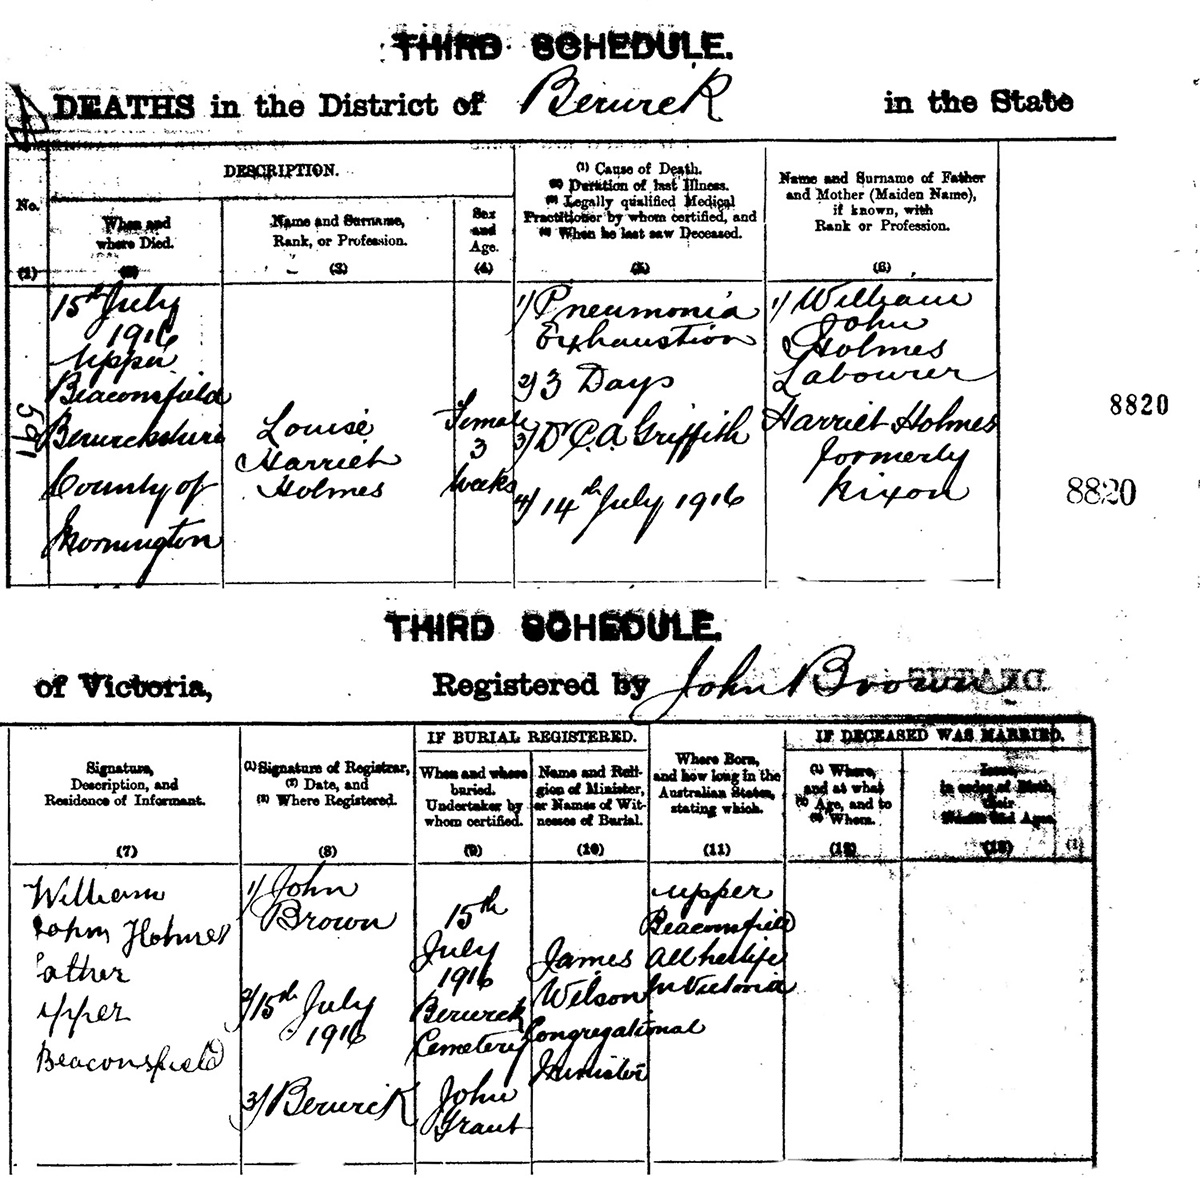 THIRD SCHEDULE.
DEATHS in the District of Berwick in the State
No.
(1)
DESCRIPTION.
When and
where Died.
(2)
Name and Surname,
Rank, or Profession.
(3)
Sex
and
Age.
(4)
(1) Cause of Death.
(2) Duration of last Illness.
(3) Legally qualified Medical
Practitioner by whom certified, and
(4) When he last saw Deceased.
(5)
Name and Surname of Father
and Mother (Maiden Name),
if known, with
Rank or Profession.
(6)
597
15th July
1916
Upper
Beaconsfield
Berwickshire
County of
Mornington
Louise
Harriet
Holmes
Female
3
weeks
1/ Pneumonia
Exhaustion
2/ 3 Days
3/ Dr C.A. Griffith
4/ 14th July 1916
1/ William
John
Holmes
Labourer
Harriet Holmes
formerly
Nixon
8820
8820
THIRD SCHEDULE.
of Victoria, Registered by John Brown
DEATHS
Signature,
Description, and
Residence of Informant.
(7)
(1) Signature of Registrar,
(2) Date, and
(3) Where Registered.
(8)
IF BURIAL REGISTERED.
When and where
buried.
Undertaker by
whom certified.
(9)
Name and Reli-
gion of Minister,
or Names of Wit-
nesses of Burial.
(10)
Where Born,
and how long in the
Australian States,
stating which.
(11)
IF DECEASED WAS MARRIED.
(1) Where,
and at what
(2) Age, and to
(3) Whom.
(12)
Issue,
in order of Birth,
their
Names and Ages.
(13)
(1)
William
John Holmes
father
Upper
Beaconsfield
1/ John
Brown
2/ 15th July
1916
3/ Berwick
15th
July
1916
Berwick
Cemetery
John
Grant
James
Wilson
Congregational
Minister
Upper
Beaconsfield
All her life
In Victoria